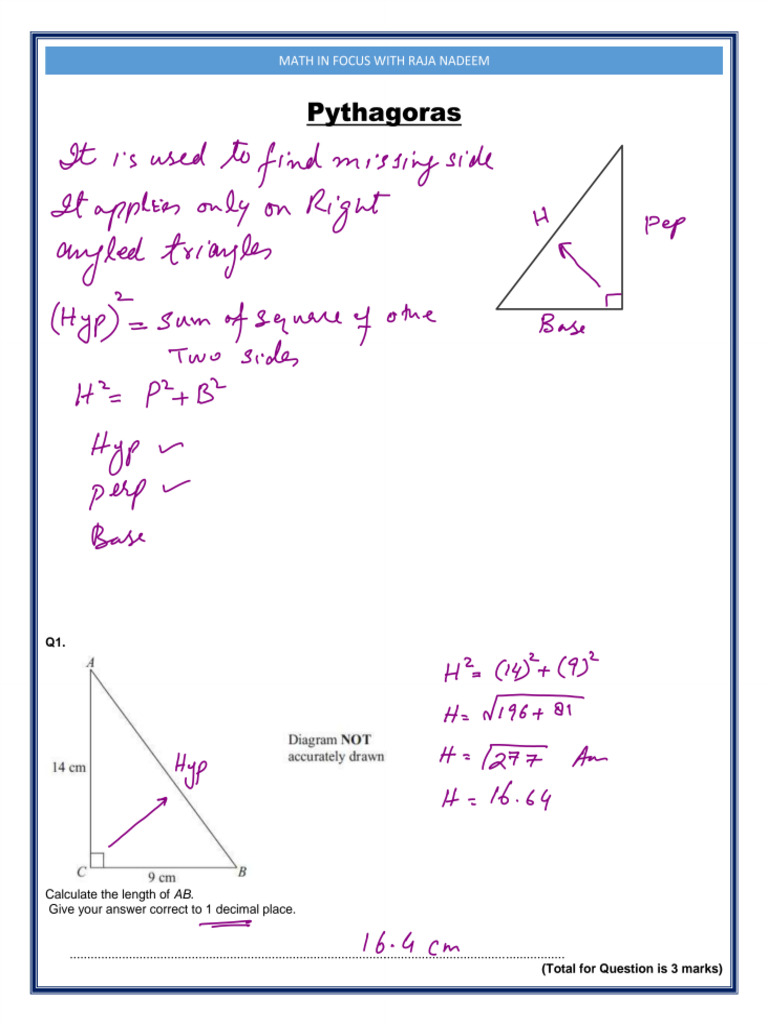 MATH IN FOCUS WITH RAJA NADEEM
Pythagoras
It is used to find missing side
It applies only on Right
angled triangles
H
Pep
Base
(Hyp)² = sum of square of othe
Two sides
H² = P² + B²
Hyp ✓
perp ✓
Base
Q1.
A
14 cm
Hyp
C
9 cm
B
Diagram NOT
accurately drawn
H² = (14)² + (9)²
H = √196 + 81
H = √277 An
H = 16.64
Calculate the length of AB.
Give your answer correct to 1 decimal place.
16.4 cm
(Total for Question is 3 marks)